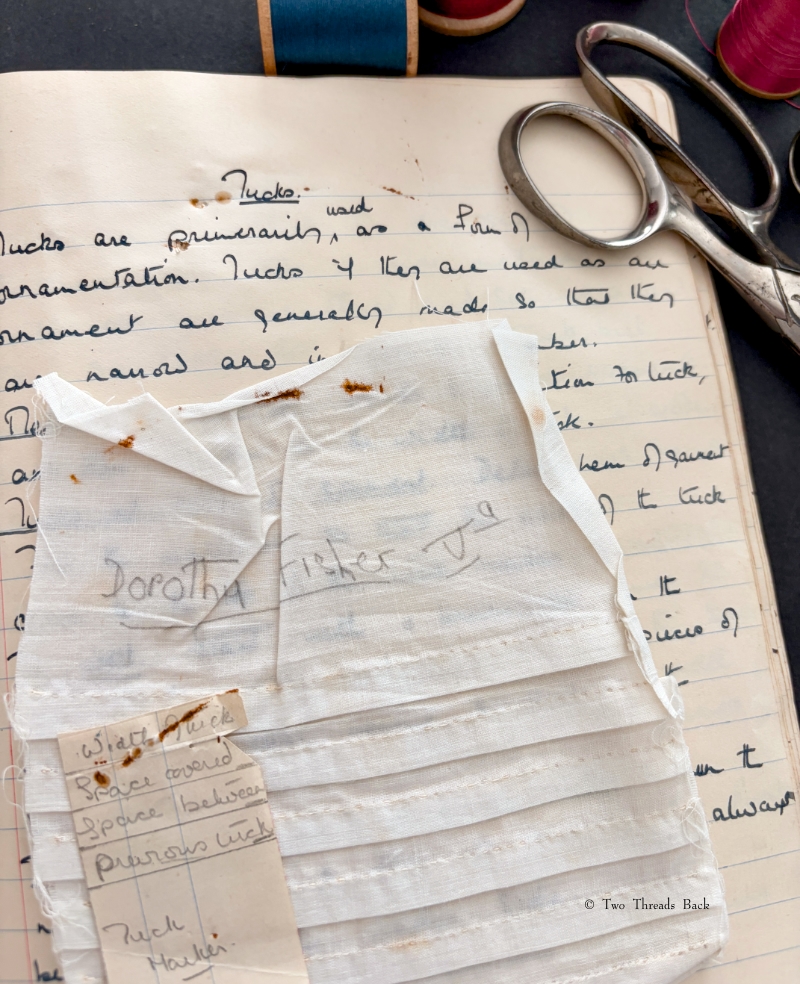 Tucks.
Tucks are primerarily, used as a form of
ornamentation. Tucks if they are used as an
ornament are generally made so that they
are narrow and in
tion for tuck,
hem of garment
of the tuck
pieces of
always
Dorothy Fisher Va
Width of tuck
Space covered
Space between
previous tuck
Tuck
Marker.
© Two Threads Back